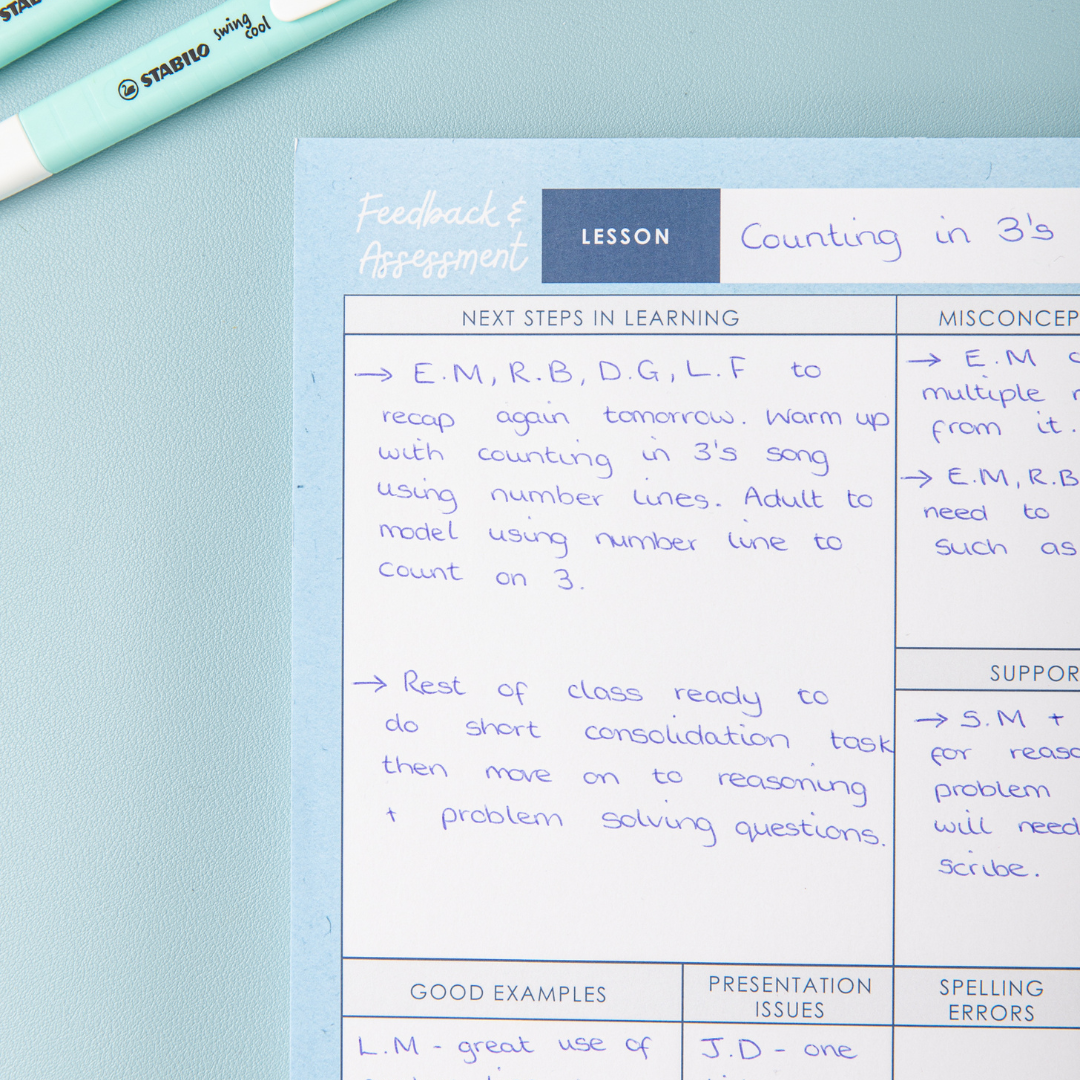 STABILO swing cool
Feedback &
Assessment
LESSON
Counting in 3's
NEXT STEPS IN LEARNING
→ E.M, R.B, D.G, L.F to
recap again tomorrow. Warm up
with counting in 3's song
using number lines. Adult to
model using number line to
count on 3.
→ Rest of class ready to
do short consolidation task
then move on to reasoning
+ problem solving questions.
→ E.M
multiple
from it.
→ E.M, R.B
need to
such as
→ S.M +
for
problem
will need
scribe.
GOOD EXAMPLES
L.M - great use of
PRESENTATION
ISSUES
J.D - one
SPELLING
ERRORS